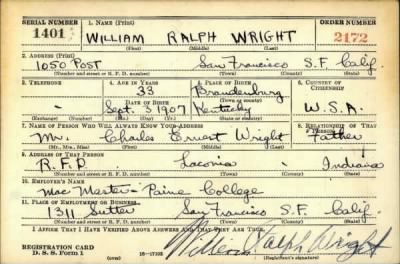 SERIAL NUMBER 1. NAME (Print) ORDER NUMBER
1401 WILLIAM RALPH WRIGHT 2172
(First) (Middle) (Last)
2. ADDRESS (Print)
1050 POST San Francisco S.F. Calif.
(Number and street or R. F. D. number) (Town) (County) (State)
3. TELEPHONE 4. AGE IN YEARS 5. PLACE OF BIRTH 6. COUNTRY OF CITIZENSHIP
33 Brandenburg
DATE OF BIRTH (Town or county)
- Sept. 3 1907 Kentucky U.S.A.
(Exchange) (Number) (Mo.) (Day) (Yr.) (State or country)
7. NAME OF PERSON WHO WILL ALWAYS KNOW YOUR ADDRESS 8. RELATIONSHIP OF THAT PERSON
Mr. Charles Ernest Wright Father
(Mr., Mrs., Miss) (First) (Middle) (Last)
9. ADDRESS OF THAT PERSON
R.F.D. Laconia - Indiana
(Number and street or R. F. D. number) (Town) (County) (State)
10. EMPLOYER'S NAME
Mac Master-Paine College
11. PLACE OF EMPLOYMENT OR BUSINESS
1311 Sutter San Francisco S.F. Calif.
(Number and street or R. F. D. number) (Town) (County) (State)
I AFFIRM THAT I HAVE VERIFIED ABOVE ANSWERS AND THAT THEY ARE TRUE.
REGISTRATION CARD
D. S. S. Form 1 16-17105 William Ralph Wright
(Registrant's signature)